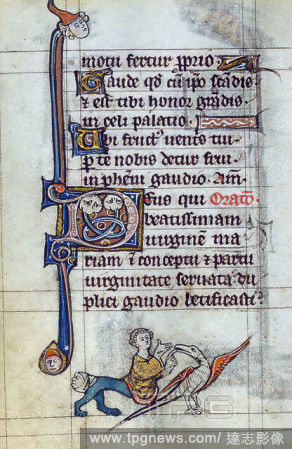 motu fertur proprio
Gaude qd cu ipo scadis
& est tibi honor gradis
in celi palatio.
Ubi fruct' uentris tui
p te nobis detur frui
in phenni gaudio. Am.
Deus qui Oratio.
beatissimam
uirginem ma
riam & conceptu & partu
uirginitate seruata du
plici gaudio letificasti:
www.tpgnews.com / 達志影像